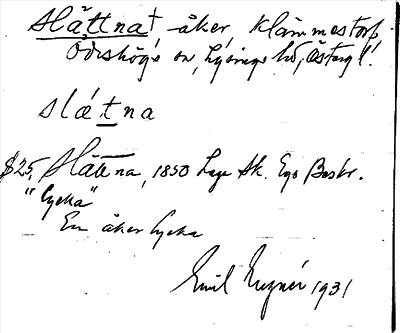 Slättna† åker, Klämmestorp
Ödeshögs sn, Lysings hd, Östergl.
slá́tna
825, Slättna, 1850 Lage Sk. Ego Beskr.
"lycka"
En åker lycka
Emil Ruznér 1931